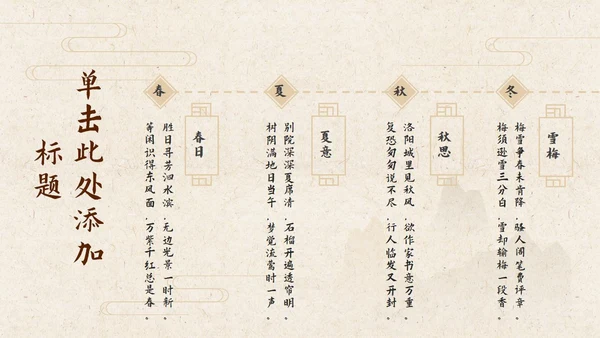 单击此处添加
标题
春
春日
胜日寻芳泗水滨，无边光景一时新。
等闲识得东风面，万紫千红总是春。
夏
夏意
别院深深夏席清，石榴开遍透帘明。
树阴满地日当午，梦觉流莺时一声。
秋
秋思
洛阳城里见秋风，欲作家书意万重。
复恐匆匆说不尽，行人临发又开封。
冬
雪梅
梅雪争春未肯降，骚人阁笔费评章。
梅须逊雪三分白，雪却输梅一段香。